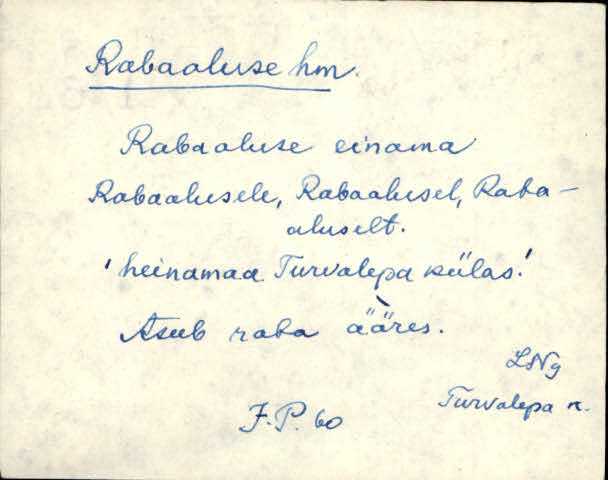 Rabaaluse hm.
Rabaaluse einama
Rabaalusele, Rabaalusel, Raba-
aluselt.
'heinamaa Turvalepa külas.'
Asub raba ä̀äres.
LNg
Turvalepa k.
J.P. 60